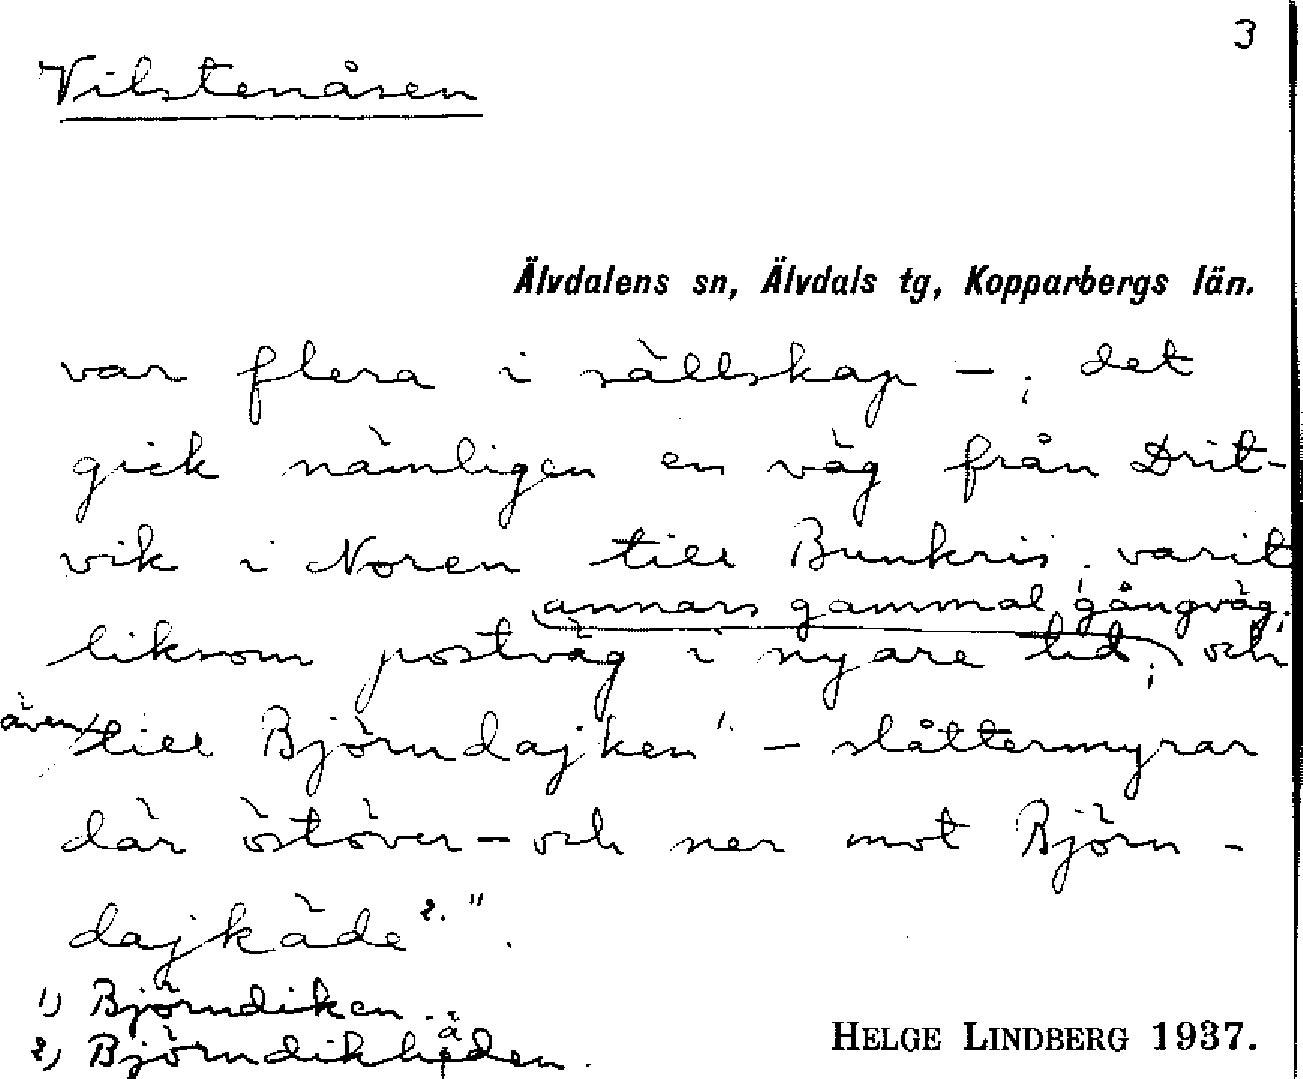 3
Vilstenåsen
Älvdalens sn, Älvdals tg, Kopparbergs län.
var flera i sällskap - ; det
gick nämligen en väg från Drit-
vik i Noren till Bunkris, varit
annars gammal gångväg;
liksom postväg i nyare tid; och
även till Björndajken¹· - slåttermyrar
där östöver - och ner mot Björn-
dajkäde²·".
1) Björndiken.
2) Björndikhäden.
HELGE LINDBERG 1937.